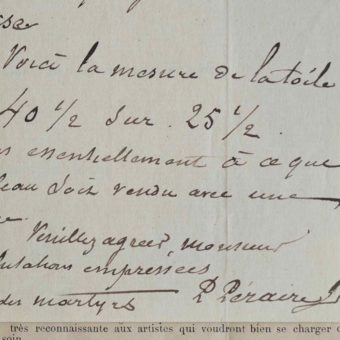 Voici la mesure de la toile
40 1/2 sur 25 1/2.
essentiellement à ce que
eau soit vendu avec une
Veuillez agréer, monsieur
lutations empressées
des martyrs P. Péraire
très reconnaissante aux artistes qui voudront bien se charger
soin